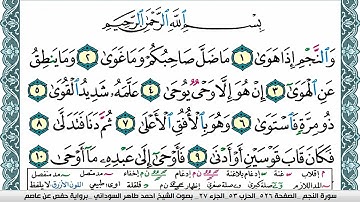 بِسْمِ اللَّهِ الرَّحْمَٰنِ الرَّحِيمِ
وَالنَّجْمِ إِذَا هَوَىٰ ١ مَا ضَلَّ صَاحِبُكُمْ وَمَا غَوَىٰ ٢ وَمَا يَنطِقُ
عَنِ الْهَوَىٰ ٣ إِنْ هُوَ إِلَّا وَحْيٌ يُوحَىٰ ٤ عَلَّمَهُ شَدِيدُ الْقُوَىٰ ٥
ذُو مِرَّةٍ فَاسْتَوَىٰ ٦ وَهُوَ بِالْأُفُقِ الْأَعْلَىٰ ٧ ثُمَّ دَنَا فَتَدَلَّىٰ ٨
فَكَانَ قَابَ قَوْسَيْنِ أَوْ أَدْنَىٰ ٩ فَأَوْحَىٰ إِلَىٰ عَبْدِهِ مَا أَوْحَىٰ ١٠
سورة النجم . الصفحة ٥٢٦ الحزب ٥٣ الجزء ٢٧ . بصوت الشيخ احمد طاهر السوداني . برواية حفص عن عاصم